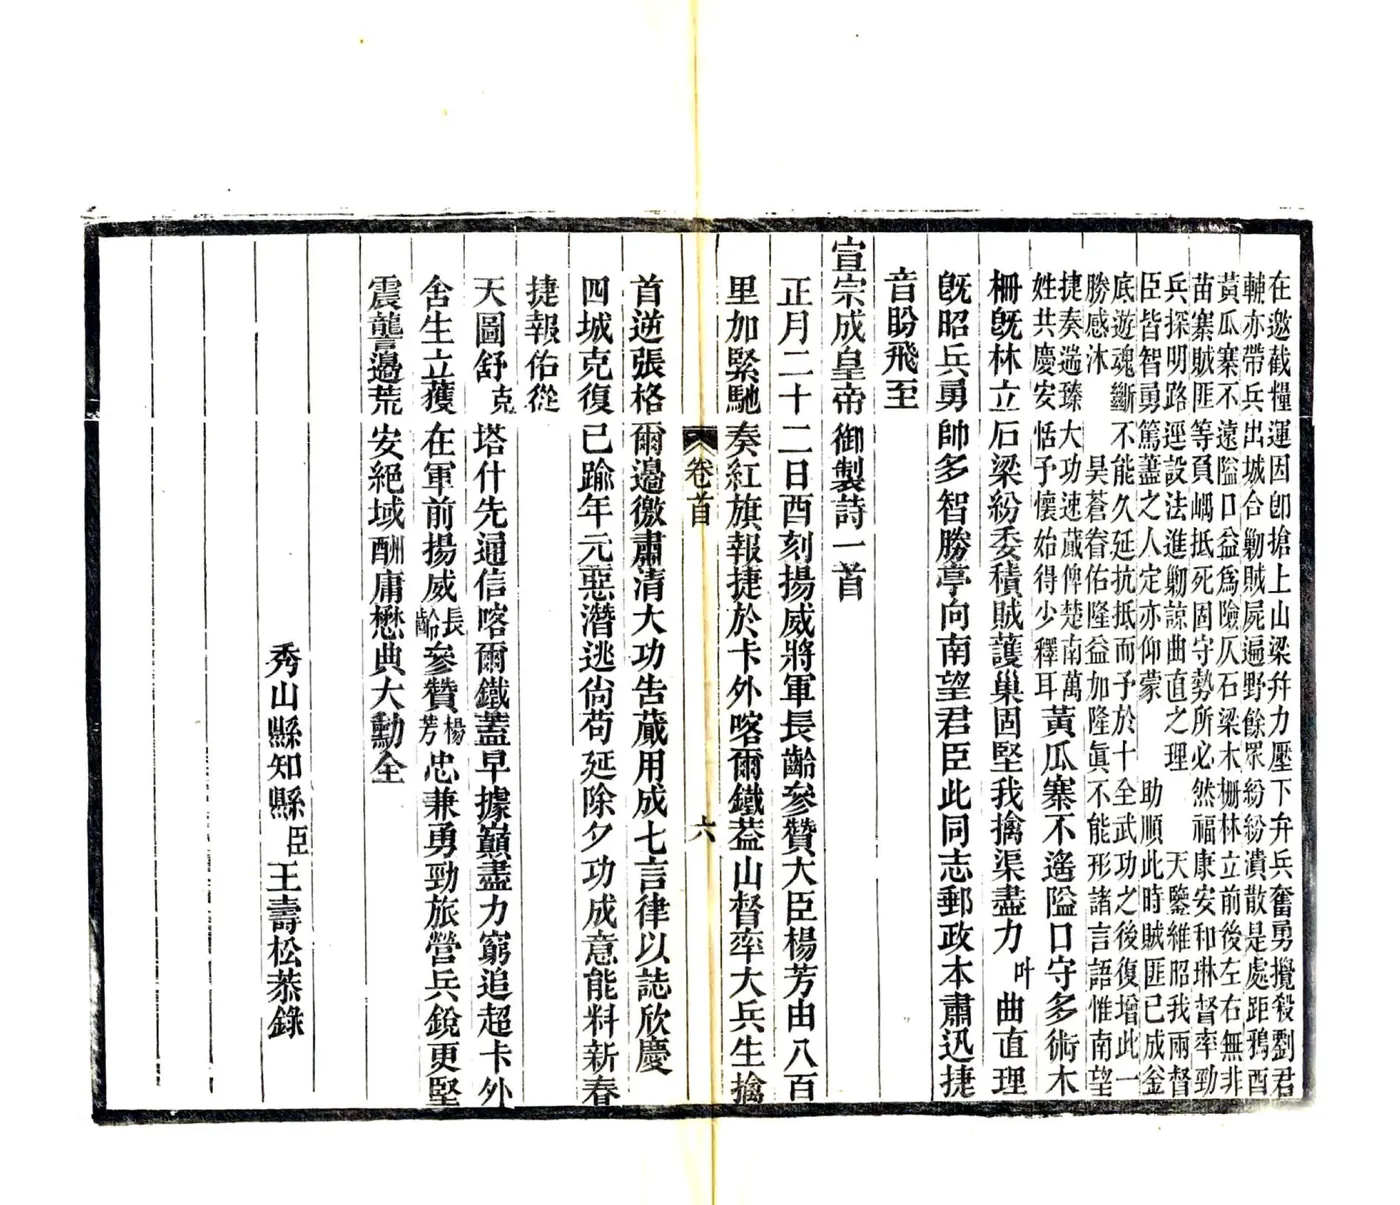 在邀截糧運因卽搶上山梁幷力壓下弁兵奮勇攪殺劉君
輔亦帶兵出城合勦賊屍遍野餘眾紛紛潰散是處距鴉酉
黃瓜寨不遠隘口益爲險仄石梁木柵林立前後左右無非
苗寨賊匪等負嵎抵死固守勢所必然福康安和琳督率勁
兵探明路逕設法進勦諒曲直之理　天鑒維昭我兩督
臣皆智勇篤藎之人定亦仰蒙　助順此時賊匪已成釜
底遊魂斷不能久延抗抵而予於十全武功之後復增此一
勝感沐　昊蒼眷佑隆益加隆眞不能形諸言語惟南望
捷奏遄臻大功速蕆俾楚南萬
姓共慶安恬予懷始得少釋耳
黃瓜寨不遙隘口守多術木
柵旣林立石梁紛委積賊護巢固堅我擒渠盡力叶曲直理
旣昭兵勇帥多智勝亭向南望君臣此同志郵政本肅迅捷
音盼飛至
宣宗成皇帝御製詩一首
正月二十二日酉刻揚威將軍長齡參贊大臣楊芳由八百
里加緊馳奏紅旗報捷於卡外喀爾鐵葢山督率大兵生擒
卷首
六
首逆張格爾邊徼肅清大功吿蕆用成七言律以誌欣慶
四城克復已踰年元惡潛逃尙苟延除夕功成意能料新春
捷報佑從
天圖舒克塔什先通信喀爾鐵蓋早據巔盡力窮追超卡外
舍生立獲在軍前揚威長齡參贊楊芳忠兼勇勁旅營兵銳更堅
震讋邊荒安絕域酬庸懋典大勳全
秀山縣知縣臣王壽松恭錄